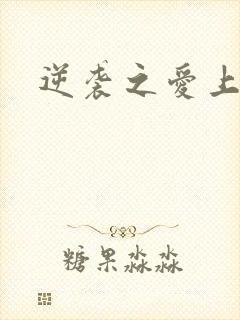 逆袭之愛上
糖果淼淼